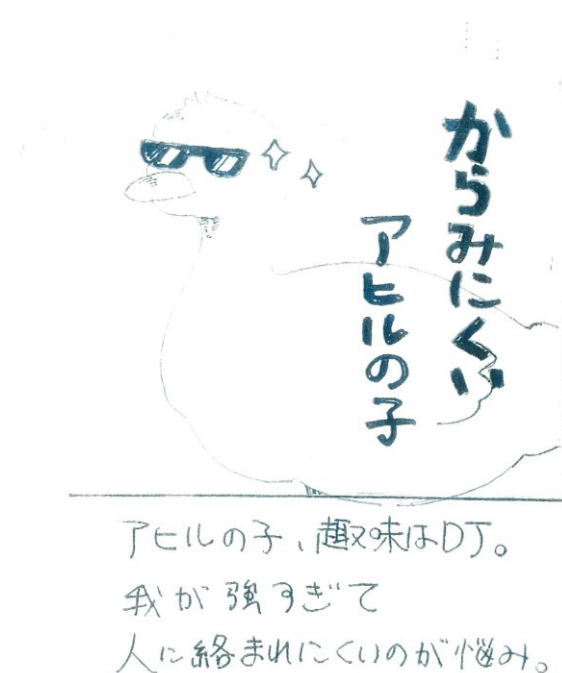 からみにくい
アヒルの子
アヒルの子、趣味はDJ。
我が強すぎて
人に絡まれにくいのが悩み。